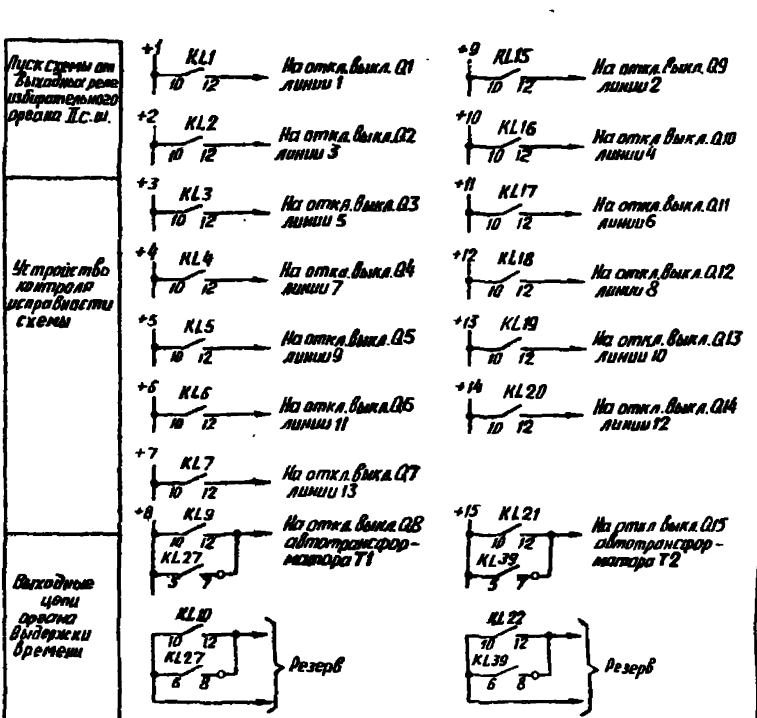 Пуск схемы от
выходных реле
избирательного
органа II с.ш.
Устройство
контроля
исправности
схемы
Выходные
цепи
органа
выдержки
времени
+1
KL1
10 12
На откл. выкл. Q1
линии 1
+2
KL2
10 12
На откл. выкл. Q2
линии 3
+3
KL3
10 12
На откл. выкл. Q3
линии 5
+4
KL4
10 12
На откл. выкл. Q4
линии 7
+5
KL5
10 12
На откл. выкл. Q5
линии 9
+6
KL6
10 12
На откл. выкл. Q6
линии 11
+7
KL7
10 12
На откл. выкл. Q7
линии 13
+8
KL9
10 12
KL27
5 7
На откл. выкл. Q8
автотрансфор-
матора T1
KL10
10 12
KL27
6 8
Резерв
+9
KL15
10 12
На откл. выкл. Q9
линии 2
+10
KL16
10 12
На откл. выкл. Q10
линии 4
+11
KL17
10 12
На откл. выкл. Q11
линии 6
+12
KL18
10 12
На откл. выкл. Q12
линии 8
+13
KL19
10 12
На откл. выкл. Q13
линии 10
+14
KL20
10 12
На откл. выкл. Q14
линии 12
+15
KL21
10 12
KL39
5 7
На откл выкл. Q15
автотрансфор-
матора T2
KL22
10 12
KL39
6 8
Резерв